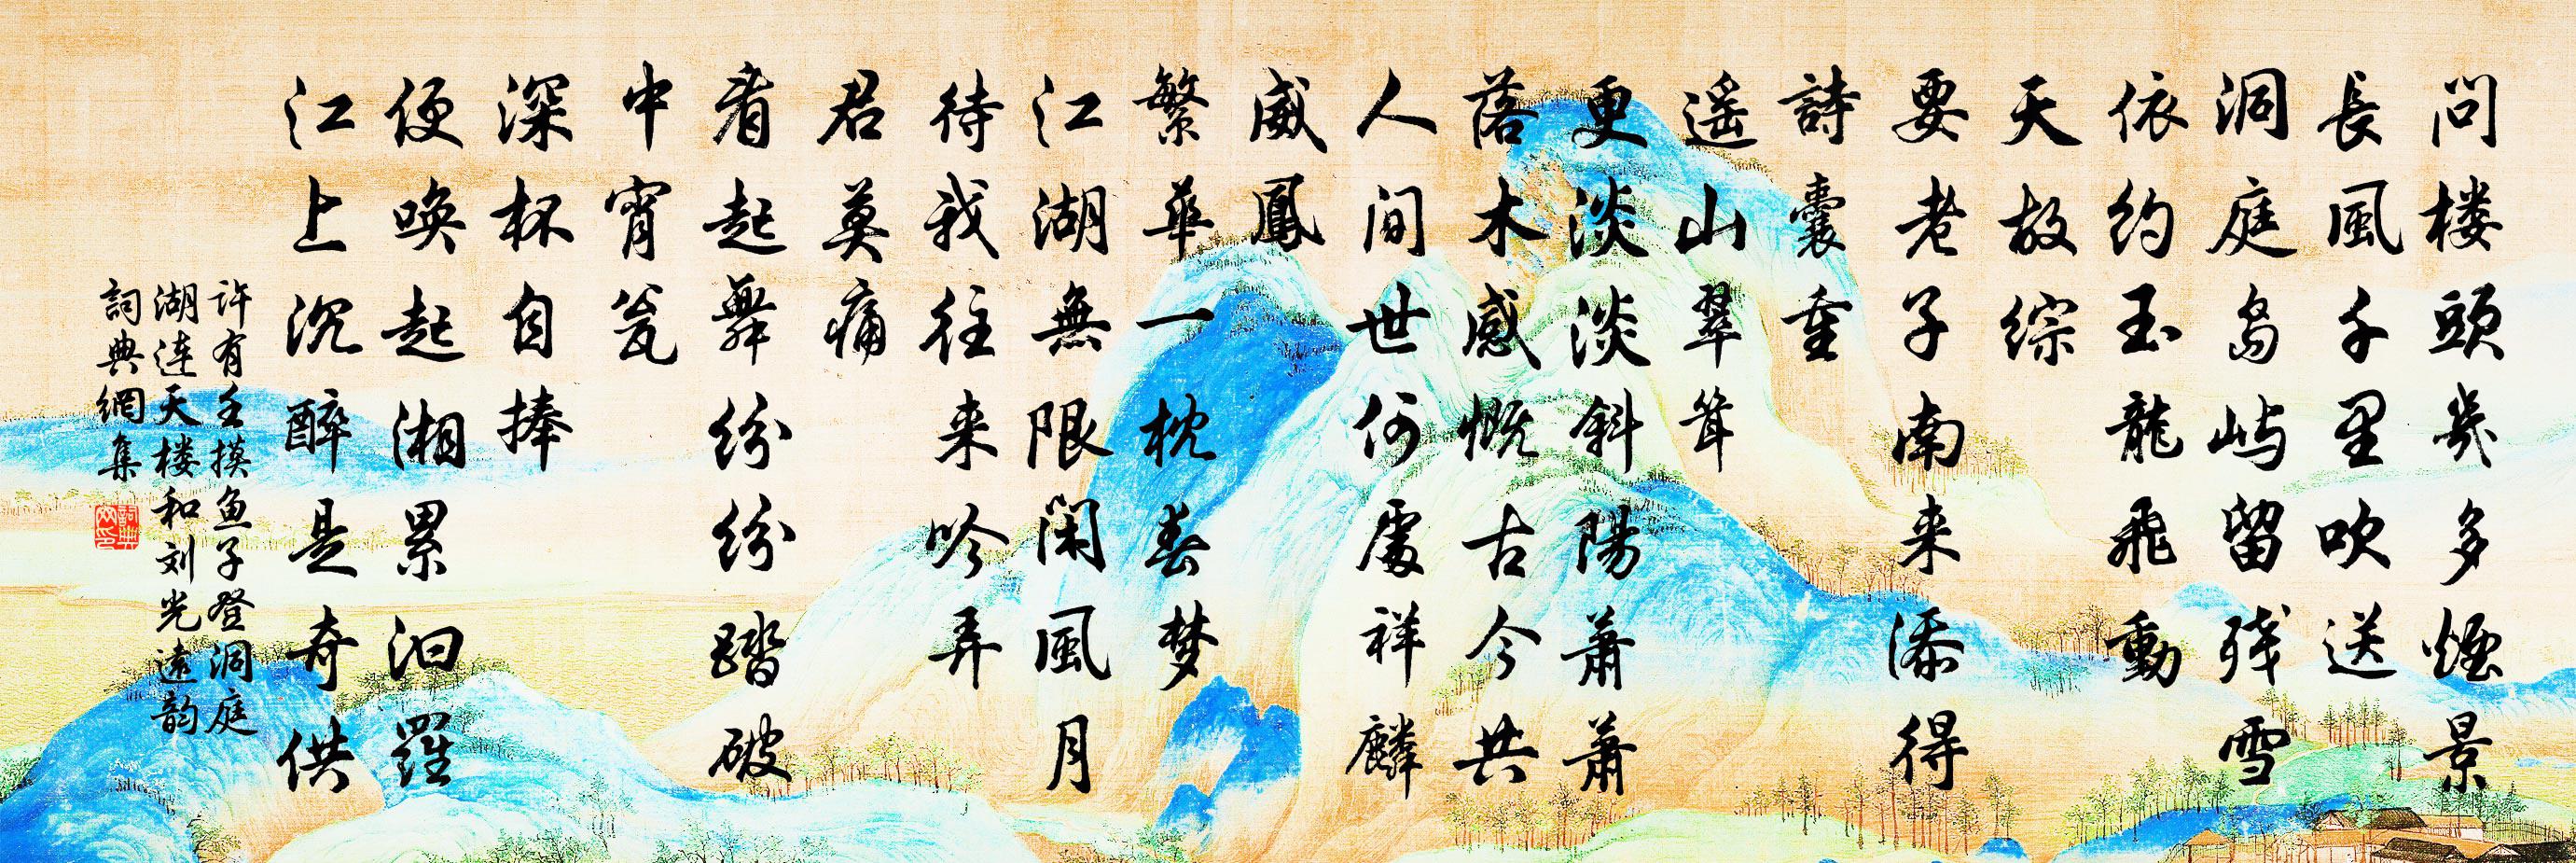 问楼頭幾多煙景
長風千里吹送
洞庭島屿留残雪
依约玉龍飛動
天故综
要老子南来添得
詩囊重
遥山翠耸
更淡淡斜陽萧萧
落木感慨古今共
人间世何處祥麟
威鳳
繁華一枕春梦
江湖無限閑風月
待我往来吟弄
君莫痛
看起舞纷纷踏破
中宵瓮
深杯自捧
便唤起湘累汨羅
江上沉醉是奇供
许有壬摸鱼子登洞庭
湖连天楼和刘光遠韵
詞典網集
詞典网印